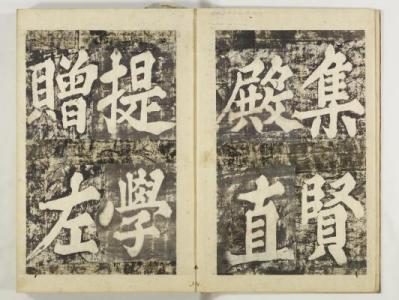 集賢
殿直
提學
贈左